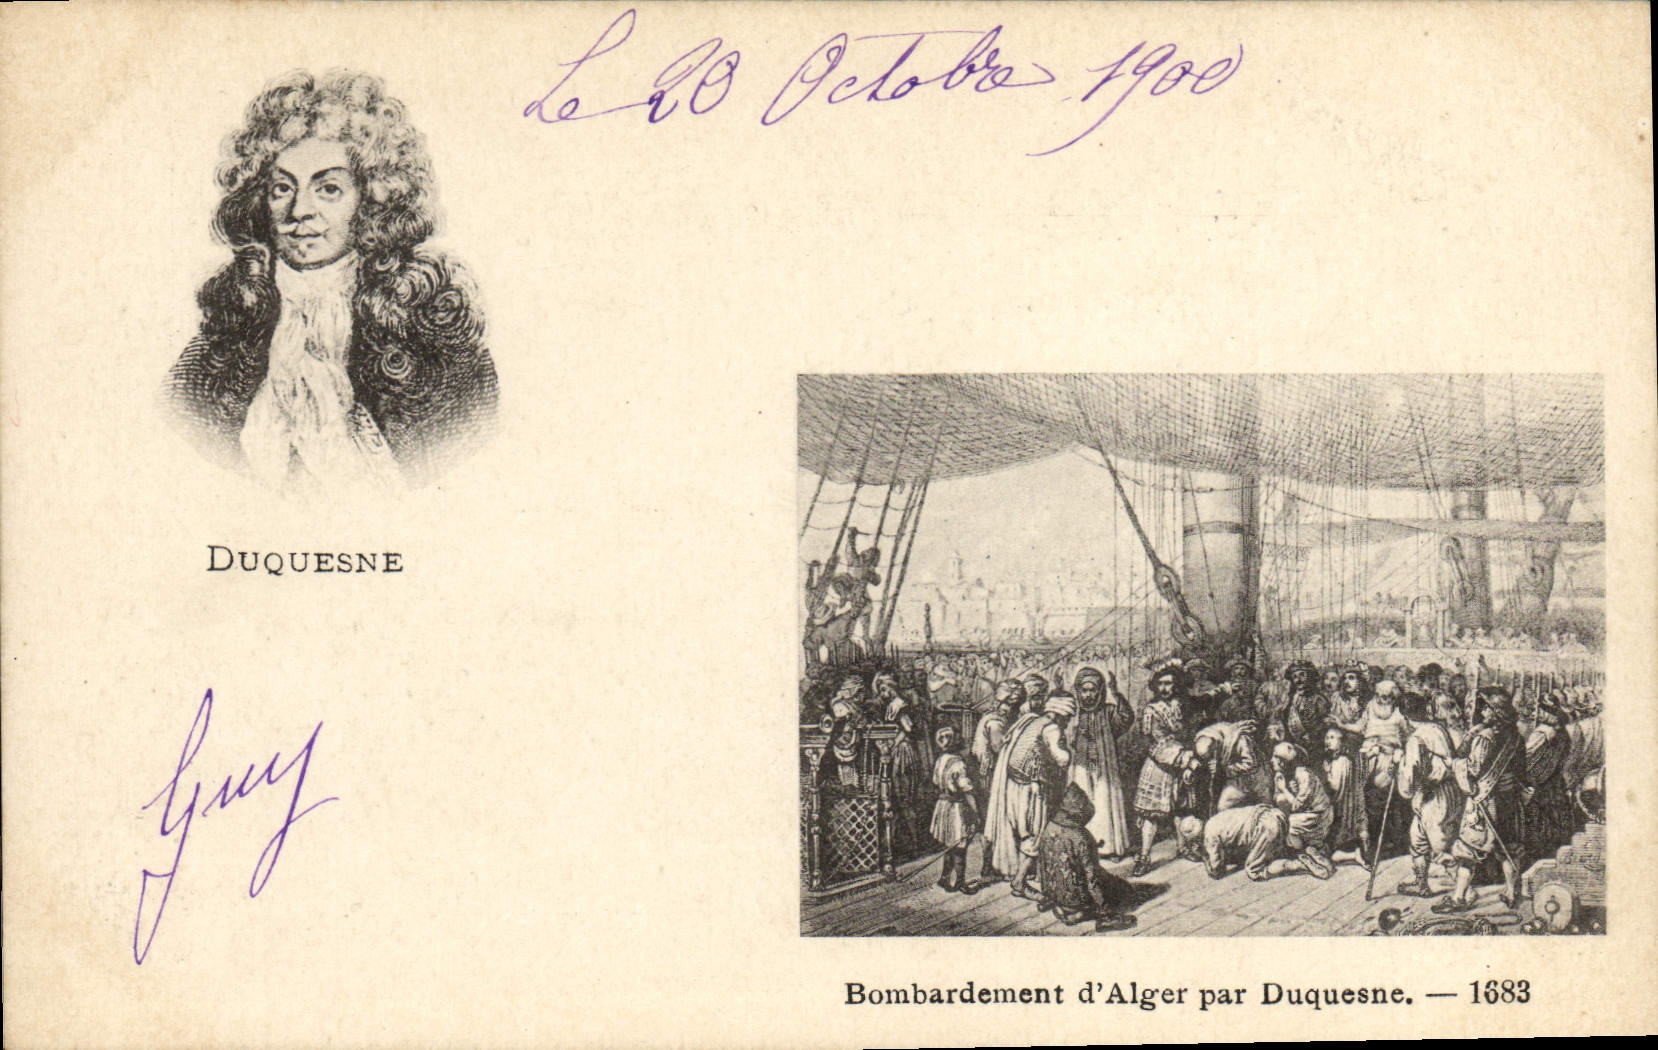 Le 20 Octobre 1900
DUQUESNE
Guy
Bombardement d'Alger par Duquesne. — 1683